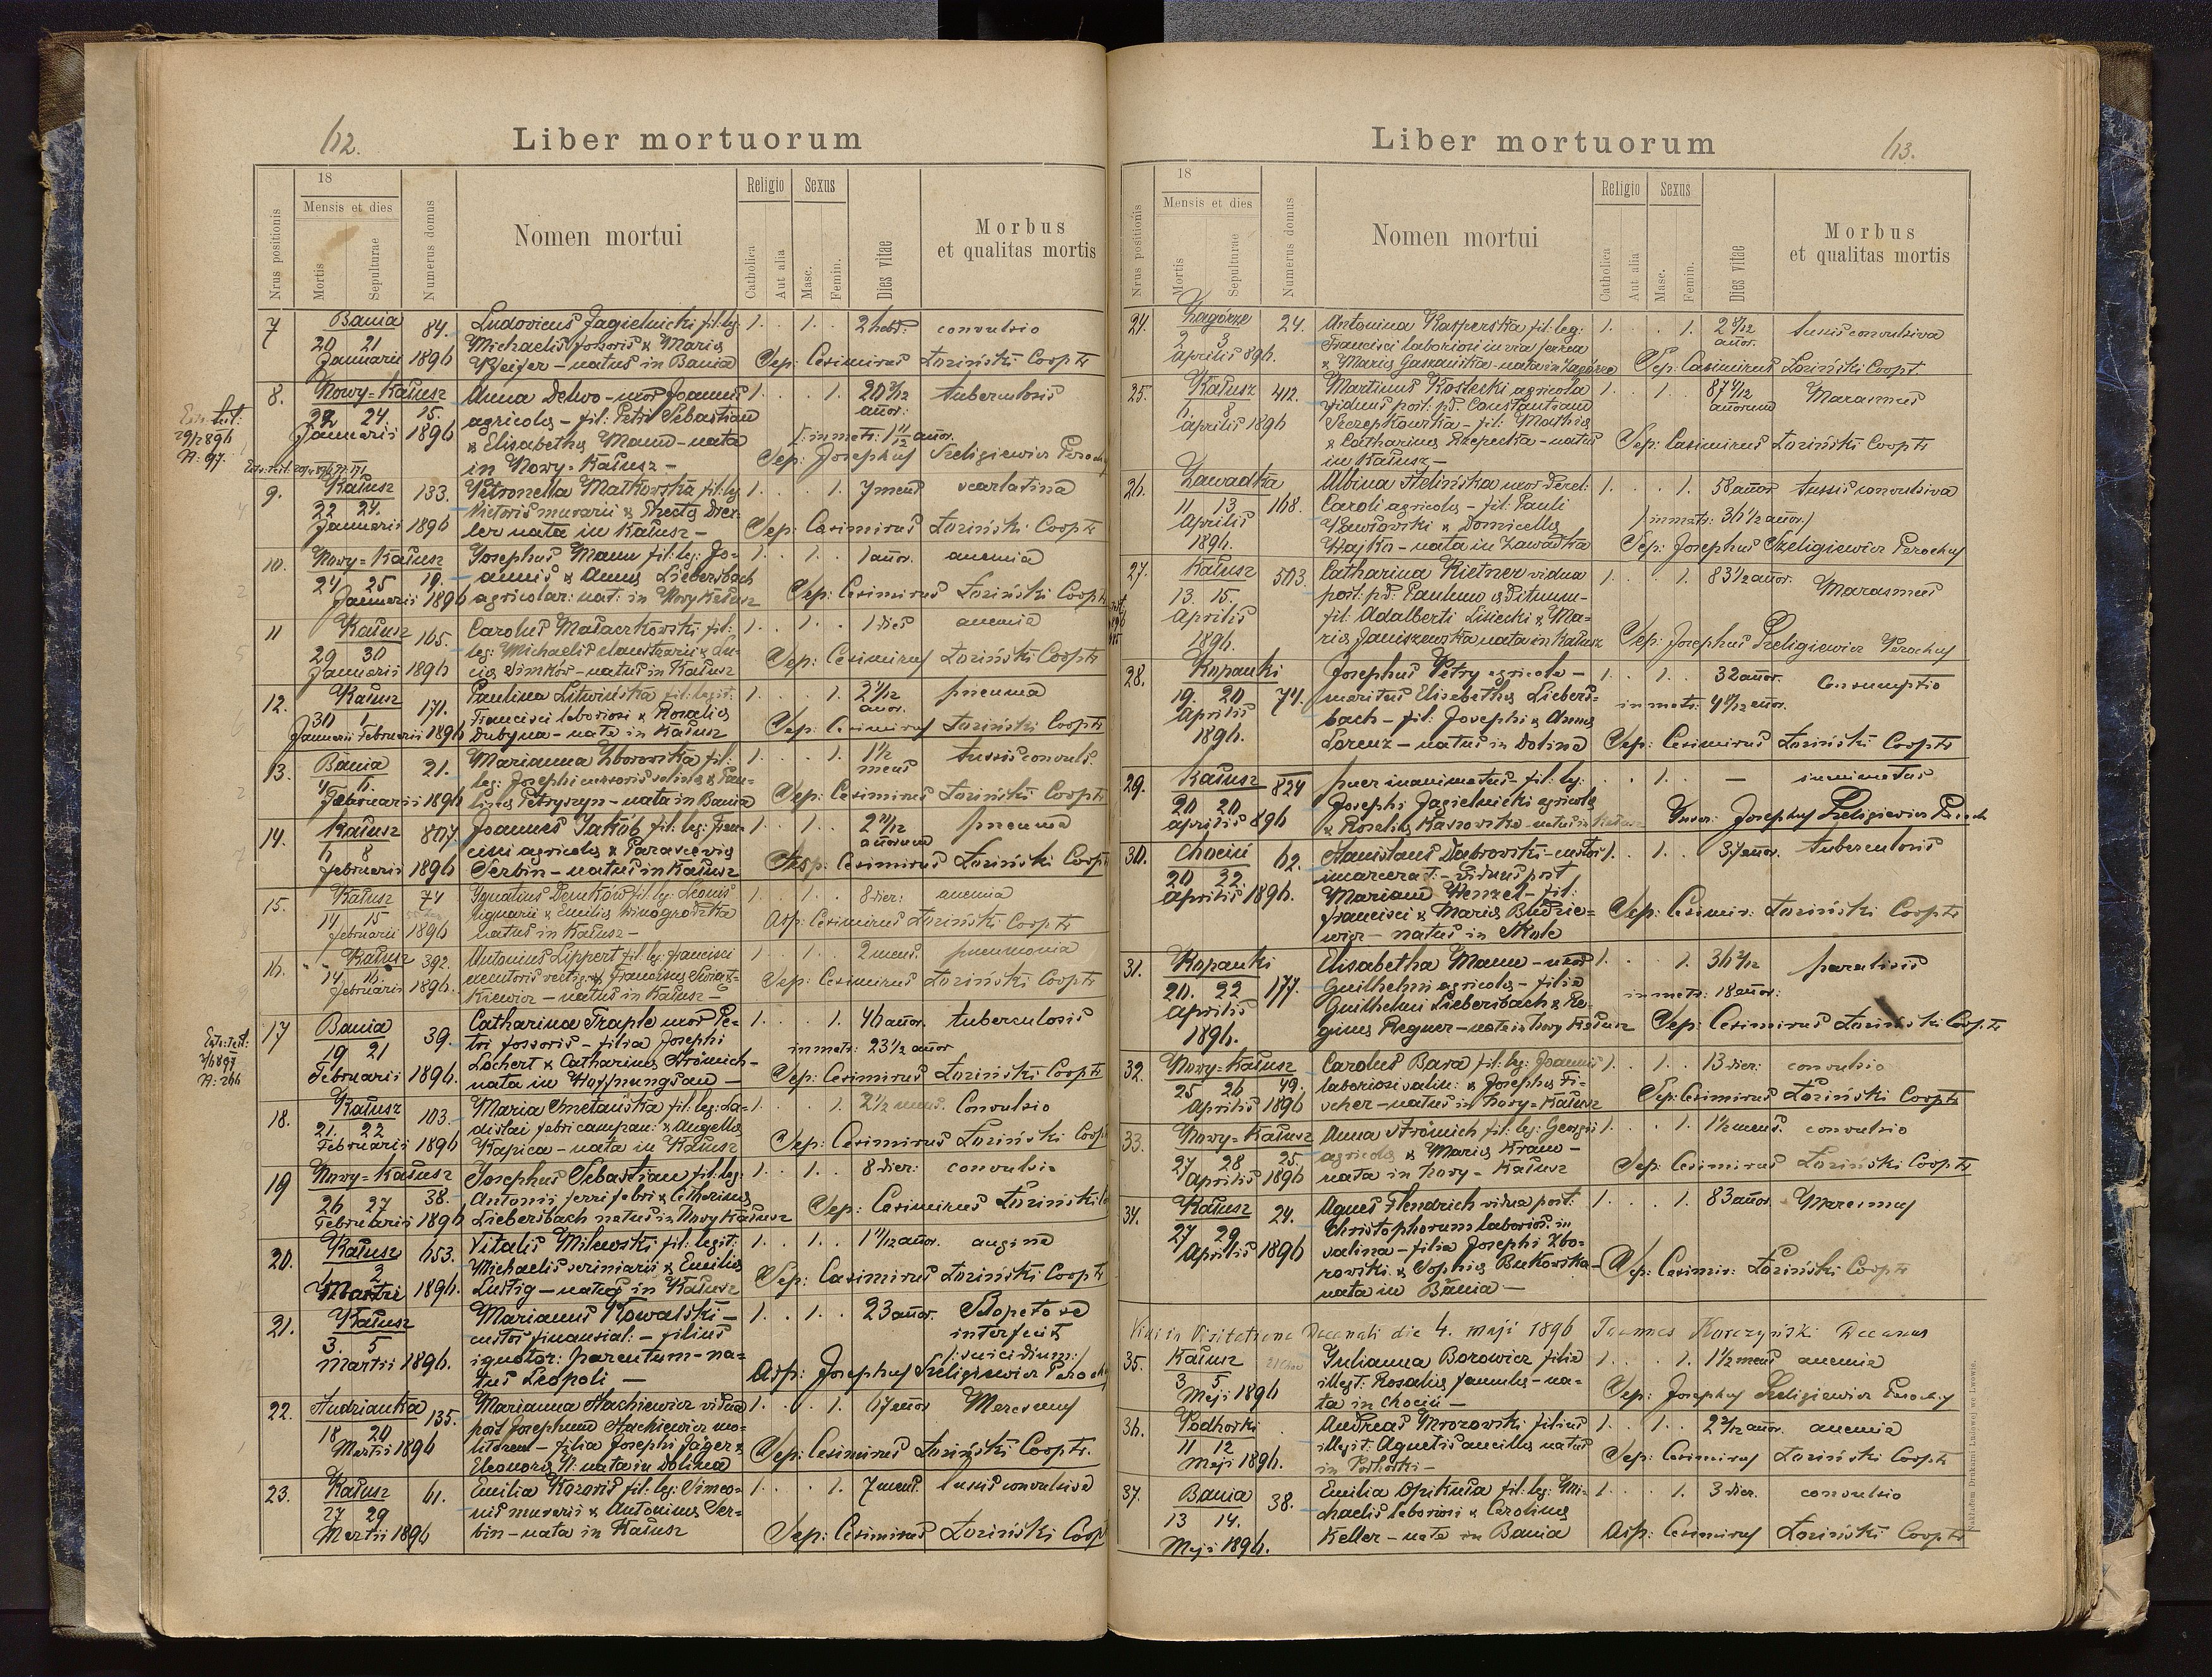 62.
Liber mortuorum
18
Mensis et dies
Religio
Sexus
Nrus positionis
Mortis
Sepulturae
Numerus domus
Nomen mortui
Catholica
Aut alia
Masc.
Femin.
Dies vitae
Morbus
et qualitas mortis
7
Bania
84.
20 21
Januarii 1896
Ludovicus Jagielnicki fil: leg:
Michaelis fossoris & Maria
Pfeifer - natus in Bania
1. 1. 2 hebd: convulsio
Sep: Casimirus Łoziński Coopts
8.
Nowy-Kałusz
22 24. 15.
Januarii 1896
Anna Delwo - uxor Joannis
agricolae - fil: Petri Sebastian
& Elisabetha Mann - nata
in Nowy-Kałusz -
1. 1. 20 2/12 añor: tuberculosis
in matr: 1 11/12 añor.
Sep: Josephus Szeligiewicz Parochus
9.
Kałusz
133.
22 24.
Januarii 1896
Petronella Małkowska fil: leg:
Victoris murarii &
nata in Kałusz -
1. 1. 7 mens scarlatina
Sep: Casimirus Łoziński Coopts
10.
Nowy-Kałusz
24 25 19.
Januarii 1896
Josephus Mann fil: leg: Jo-
annis & Anna Liebersbach
agricolar: nat: in Nowy Kałusz
1. 1. 1 añor. anemia
Sep: Casimirus Łoziński Coopts
11
Kałusz
165.
29 30
Januarii 1896
Carolus Małaczkowski fil:
leg: Michaelis & Lu-
cia Simków - natus in Kałusz
1. 1. 1 dies anemia
Sep: Casimirus Łoziński Coopts
12.
Kałusz
171.
30 1
Januarii Februarii 1896
Paulina Litwińska fil: legit:
Francisci laboriosi & Rosalia
Dubyna - nata in Kałusz
1. 1. 2 1/12 añor. pneuma
Sep: Casimirus Łoziński Coopts
13.
Bania
21.
4 6.
Februarii 1896
Marianna Zborowska fil:
leg: Josephi & Pau-
lina Petryszyn - nata in Bania
1. 1. 1 1/2 mens tussis convuls.
Sep: Casimirus Łoziński Coopts
14.
Kałusz
807
6 8
Februarii 1896
Joannes Jakób fil: leg: Fran-
cisci agricolae & Parascevia
Serbin - natus in Kałusz
1. 1. añorum pneuma
Sep: Casimirus Łoziński Coopts
15.
Kałusz
74
14 15
Februarii 1896
Ignatius Demków fil: leg: Leonis
lignarii & Emilia Winogrodzka
natus in Kałusz -
1. 1. 8 dier: anemia
Asp: Casimirus Łoziński Coopts
16.
Kałusz
392.
14 16.
Februarii 1896.
Antonius Lippert fil: leg: Francisci
& Francisca
- natus in Kałusz -
1. 1. 2 mens. pneumonia
Sep: Casimirus Łoziński Coopts
17
Bania
39.
19 21
Februarii 1896.
Catharina Traple uxor Pe-
tri fossoris - filia Josephi
Lochert & Catharina Strömich -
nata in Hoffnungsau -
1. 1. 46 añor. tuberculosis
in matr: 23 1/2 añor
Sep: Casimirus Łoziński Coopts
18.
Kałusz
103.
21. 22
Februarii 1896
Maria Smetańska fil: leg: La-
dislai fabri campan: & Angella
Kapica - nata in Kałusz
1. 1. 2 1/2 mens. Convulsio
Sep: Casimirus Łoziński Coopts
19
Nowy-Kałusz
26 27 38.
Februarii 1896
Josephus Sebastian fil: leg:
Antonii ferri fabri & Catharina
Liebersbach natus in Nowy Kałusz
1. 1. 8 dier: convulsio
Sep: Casimirus Łoziński
20.
Kałusz
653.
1 2
Martii 1896.
Vitalis Milewski fil: legit:
Michaelis scriniarii & Emilia
Lustig - natus in Kałusz
1. 1. 1 11/12 añor. angina
Sep: Casimirus Łoziński Coopts
21.
Kałusz
3. 5
Martii 1896.
Marianus Kowalski -
custos finansial: - filius
ignotor: parentum - na-
tus Leopoli -
1. 1. 23 añor. Sclopeto se
interfecit
/: suicidium :/
Asp: Josephus Szeligiewicz Parochus
22.
Andrianka
135.
18 20
Martii 1896
Marianna Stachiewicz vidua
post Josephum Stachiewicz mo-
litorem - filia Josephi Jäger &
Eleonora N: nata in Dolina
1. 1. 67 añor Marasmus
Sep: Casimirus Łoziński Coopts.
23.
Kałusz
61.
27 29
Martii 1896
Emilia Kozoris fil: leg: Simeo-
nis murarii & Antonina Ser-
bin - nata in Kałusz
1. 1. 7 mens. tussis convulsiva
Sep: Casimirus Łoziński Coopts
63.
Liber mortuorum
18
Mensis et dies
Religio
Sexus
Nrus positionis
Mortis
Sepulturae
Numerus domus
Nomen mortui
Catholica
Aut alia
Masc.
Femin.
Dies vitae
Morbus
et qualitas mortis
24.
Zagórze
24.
2 3
Aprilis 896.
Antonina Kasperska fil: leg:
Francisci laboriosi in via ferrea
& Maria - nata in Zagórze
1. 1. añor. tussis convulsiva
Sep: Casimirus Łoziński Coopt.
25.
Kałusz
412.
6. 8
Aprilis 1896
Martinus Kostecki agricola
viduus post: pd: Constantiam
Szczepkowska - fil: Mathia
& Catharina Rzepecka - natus
in Kałusz -
1. 1. añorum Marasmus
Sep: Casimirus Łoziński Coopts
26.
Zawadka
11 13 168.
Aprilis
1896.
Albina Stelińska uxor
Caroli agricolae - fil: Pauli
Pawłowski & Domicella
Hajka - nata in Zawadka
1. 1. 58 añor tussis convulsiva
/ in matr: 36 1/2 añor: /
Sep: Josephus Szeligiewicz Parochus
27.
Kałusz
503.
13. 15.
Aprilis
1896.
Catharina Kietner vidua
post: pd: Paulum
fil: Adalberti Lisiecki & Ma-
ria Janiszewska nata in Kałusz
1. 1. 83 1/2 añor. Marasmus
Sep: Josephus Szeligiewicz Parochus
28.
Kopanki
19. 20 74.
Aprilis
1896.
Josephus Petry agricola -
maritus Elisabetha Liebers-
bach - fil: Josephi & Anna
Lorenz - natus in Dolina
1. 1. 32 añor. Consumptio
in matr: añor.
Sep: Casimirus Łoziński Coopts
29.
Kałusz
824
20 20
Aprilis 896
puer inanimatus - fil: leg:
Josephi Jagielnicki agricola
& Rosalia - natus in Kałusz
1. — inanimatus
Josephus Szeligiewicz Paroch
30.
Chocin
62.
20 22.
Aprilis 1896.
Stanislaus Dabrowski - custos
incarcerat: - viduus post
Mariam Wenzel - fil:
Francisci & Maria Budzie-
wicz - natus in Skole
1. 1. 37 añor. tuberculosis
Sep: Casimir: Łoziński Coopts
31.
Kopanki
20. 22 177.
Aprilis
1896.
Elisabetha Mann - uxor
Guilhelmi agricolae - filia
Guilhelmi Liebersbach & Re-
gina Regner - nata in Nowy Kałusz
1. 1. 36 2/12 paralisis
in matr: 18 añor:
Sep: Casimirus Łoziński Coopts
32.
Nowy-Kałusz
25 26 49.
Aprilis 1896
Carolus Bara fil: leg: Joannis
laboriosi salin: & Josepha Fi-
scher - natus in Nowy-Kałusz
1. 1. 13 dier: convulsio
Sep: Casimirus Łoziński Coopts
33.
Nowy-Kałusz
27 28 25.
Aprilis 1896
Anna Strömich fil: leg: Georgii
agricolae & Maria Kraus -
nata in Nowy-Kałusz
1. 1. 1 1/2 mens. convulsio
Sep: Casimirus Łoziński Coopts
34.
Kałusz
24.
27 29
Aprilis 1896
Agnes Flendrich vidua post:
Christophorum laborios: in
salina - filia Josephi Zbo-
rowski & Sophia Bukowska -
nata in Bania -
1. 1. 83 añor. Marasmus
Sep: Casimir: Łoziński Coopts
Vidi in Visitatione Decanali die 4. maji 1896 Joannes Korczyński Decanus
35.
Kałusz
3 5
Maji 1896
Julianna Borowicz filia
illegt: Rosalia famula - na-
ta in Chocin -
1. 1. 1 1/2 mens anemia
Sep: Josephus Szeligiewicz Parochus
36.
Podhorki
11 12
Maji 1896.
Andreas Mrozowski filius
illegit: Agnetis ancilla natus
in Podhorki -
1. 1. añor. anemia
Sep: Casimirus Łoziński Coopts
37.
Bania
38.
13 14.
Maji 1896.
Emilia Opikuła fil: leg: Mi-
chaelis laboriosi & Carolina
Keller - nata in Bania
1. 1. 3 dier. convulsio
Asp: Casimirus Łoziński Coopts